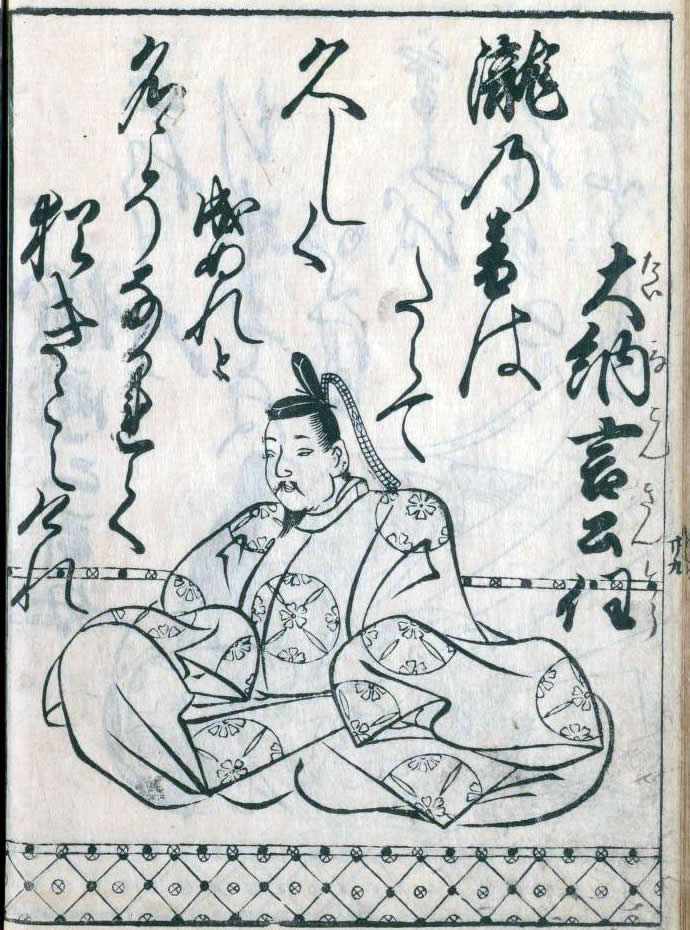 大納言公任
たい な こん きん たう
瀧乃音は
たえて
久しく
成ぬれと
名こそなかれて
猶きこえけれ
廿九